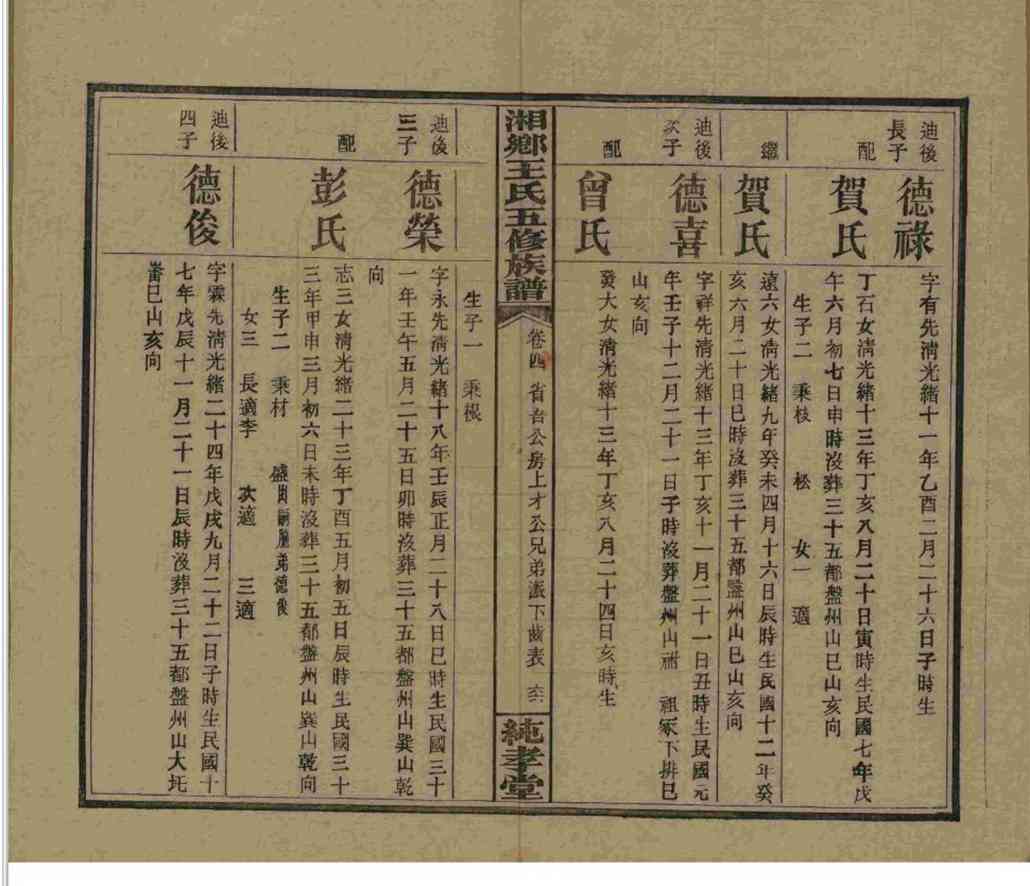 迪後長子
德祿
字有先清光緒十一年乙酉二月二十六日子時生
配
賀氏
丁石女清光緒十三年丁亥八月二十日寅時生民國七年戊
午六月初七日申時沒葬三十五都盤州山巳山亥向
生子二 秉枝 松 女一 適
繼
賀氏
遠六女清光緒九年癸未四月十六日辰時生民國十二年癸
亥六月二十日巳時沒葬三十五都盤州山巳山亥向
迪後次子
德喜
字祥先清光緒十三年丁亥十一月二十一日丑時生民國元
年壬子十二月二十一日子時沒葬盤州山 祖冢下排巳
山亥向
配
曾氏
發大女清光緒十三年丁亥八月二十四日亥時生
湘鄉王氏五修族譜
卷四 省吾公房上才公兄弟派下齒表
純孝堂
生子一 秉根
迪後三子
德榮
字永先清光緒十八年壬辰正月二十八日巳時生民國三十
一年壬午五月二十五日卯時沒葬三十五都盤州山巽山乾
向
配
彭氏
志三女清光緒二十三年丁酉五月初五日辰時生民國三十
三年甲申三月初六日未時沒葬三十五都盤州山巽山乾向
生子二 秉材 盛出嗣胞弟德俊
女三 長適李 次適 三適
迪後四子
德俊
字霖先清光緒二十四年戊戌九月二十二日子時生民國十
七年戊辰十一月二十一日辰時沒葬三十五都盤州山大圫
巳山亥向